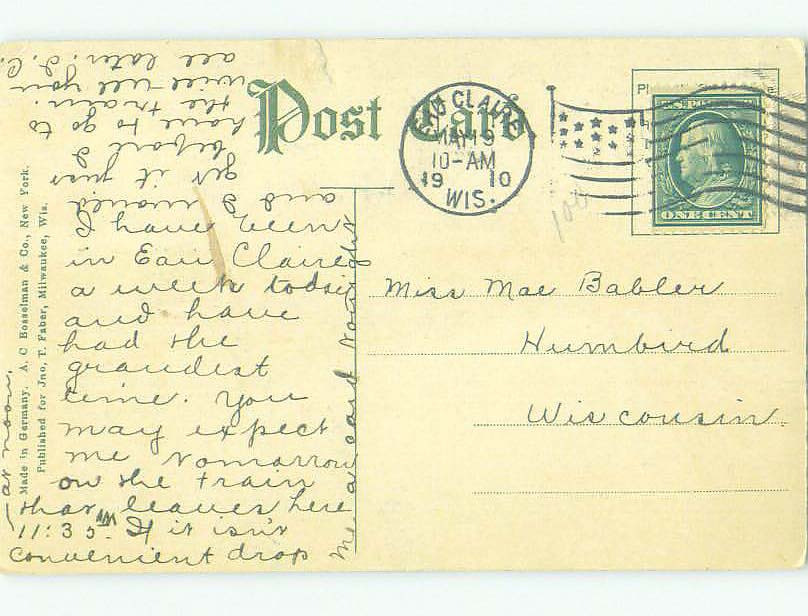 Post Card
EAU CLAIRE
MAY 19
10-AM
1910
WIS.
ONE CENT
Miss Mae Babler
Humbird
Wisconsin.
I have been
in Eau Claire
a week today
and have
had the
grandest
time. You
may expect
me tomarrow
on the train
that leaves here
11:35 AM. If it isn't
convenient drop
me a card tonight
and I would
get it just
before I
have to go to
the train.
will tell you
all later. I. C.
—at noon.
Made in Germany. A. C Bosselman & Co., New York.
Published for Jno. T. Faber, Milwaukee, Wis.
100